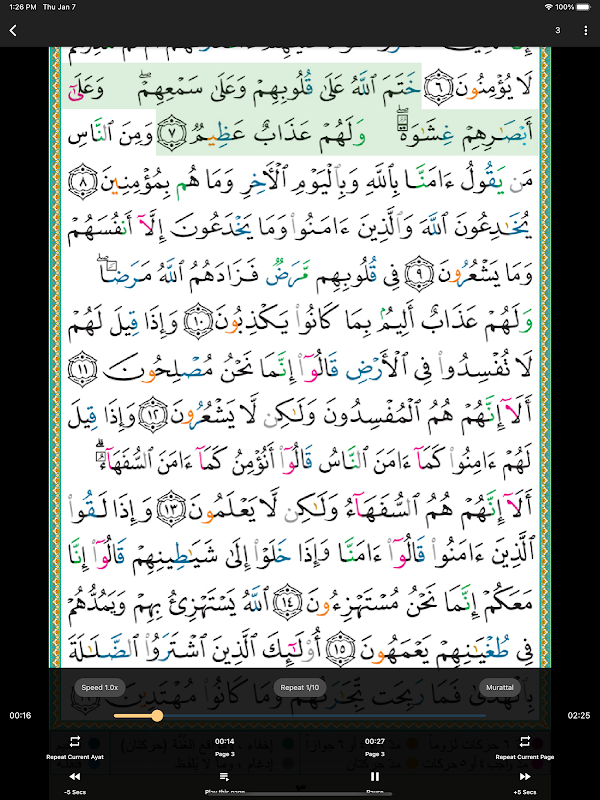 1:26 PM Thu Jan 7 100%
3
لَا يُؤْمِنُونَ ٦ خَتَمَ ٱللَّهُ عَلَىٰ قُلُوبِهِمْ وَعَلَىٰ سَمْعِهِمْ ۖ وَعَلَىٰٓ
أَبْصَـٰرِهِمْ غِشَـٰوَةٌ ۖ وَلَهُمْ عَذَابٌ عَظِيمٌ ٧ وَمِنَ ٱلنَّاسِ
مَن يَقُولُ ءَامَنَّا بِٱللَّهِ وَبِٱلْيَوْمِ ٱلْـَٔاخِرِ وَمَا هُم بِمُؤْمِنِينَ ٨
يُخَـٰدِعُونَ ٱللَّهَ وَٱلَّذِينَ ءَامَنُوا۟ وَمَا يَخْدَعُونَ إِلَّآ أَنفُسَهُمْ
وَمَا يَشْعُرُونَ ٩ فِى قُلُوبِهِم مَّرَضٌ فَزَادَهُمُ ٱللَّهُ مَرَضًا ۖ
وَلَهُمْ عَذَابٌ أَلِيمٌۢ بِمَا كَانُوا۟ يَكْذِبُونَ ١٠ وَإِذَا قِيلَ لَهُمْ
لَا تُفْسِدُوا۟ فِى ٱلْأَرْضِ قَالُوٓا۟ إِنَّمَا نَحْنُ مُصْلِحُونَ ١١
أَلَآ إِنَّهُمْ هُمُ ٱلْمُفْسِدُونَ وَلَـٰكِن لَّا يَشْعُرُونَ ١٢ وَإِذَا قِيلَ
لَهُمْ ءَامِنُوا۟ كَمَآ ءَامَنَ ٱلنَّاسُ قَالُوٓا۟ أَنُؤْمِنُ كَمَآ ءَامَنَ ٱلسُّفَهَآءُ ۗ
أَلَآ إِنَّهُمْ هُمُ ٱلسُّفَهَآءُ وَلَـٰكِن لَّا يَعْلَمُونَ ١٣ وَإِذَا لَقُوا۟
ٱلَّذِينَ ءَامَنُوا۟ قَالُوٓا۟ ءَامَنَّا وَإِذَا خَلَوْا۟ إِلَىٰ شَيَـٰطِينِهِمْ قَالُوٓا۟ إِنَّا
مَعَكُمْ إِنَّمَا نَحْنُ مُسْتَهْزِءُونَ ١٤ ٱللَّهُ يَسْتَهْزِئُ بِهِمْ وَيَمُدُّهُمْ
فِى طُغْيَـٰنِهِمْ يَعْمَهُونَ ١٥ أُو۟لَـٰٓئِكَ ٱلَّذِينَ ٱشْتَرَوُا۟ ٱلضَّلَـٰلَةَ
بِٱلْهُدَىٰ فَمَا رَبِحَت تِّجَـٰرَتُهُمْ وَمَا كَانُوا۟ مُهْتَدِينَ
Speed 1.0x Repeat 1/10 Murattal
00:16 02:25
00:14 00:27
Page 3 Page 3
Repeat Current Ayat Repeat Current Page
-5 Secs Play this page Pause +5 Secs